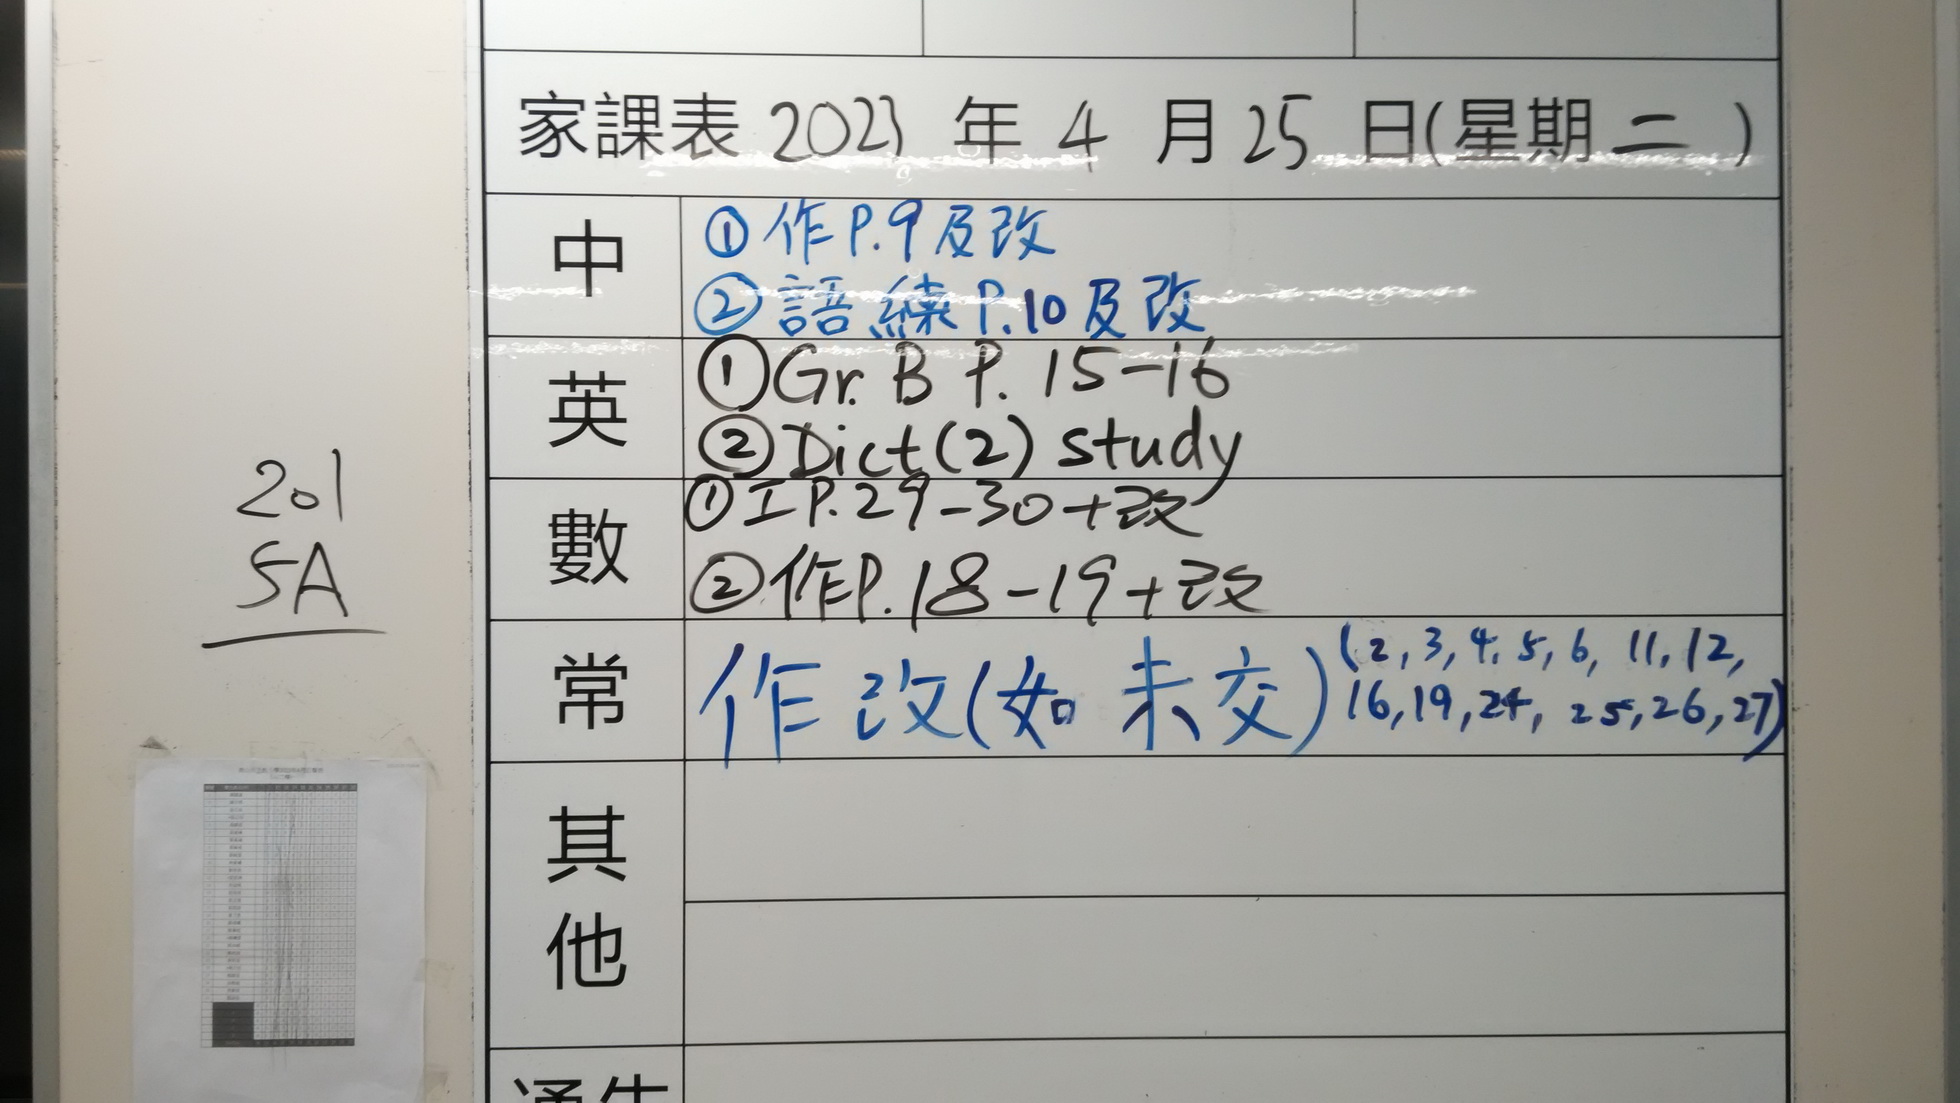 家課表 2023 年 4 月 25 日(星期二)
中
①作P.9及改
②語練P.10及改
英
①Gr. B P. 15-16
②Dict(2) study
數
①工P.29-30+改
②作P.18-19+改
常
作改(如未交)(2, 3, 4, 5, 6, 11, 12,
16, 19, 24, 25, 26, 27)
其他
通告
201
5A